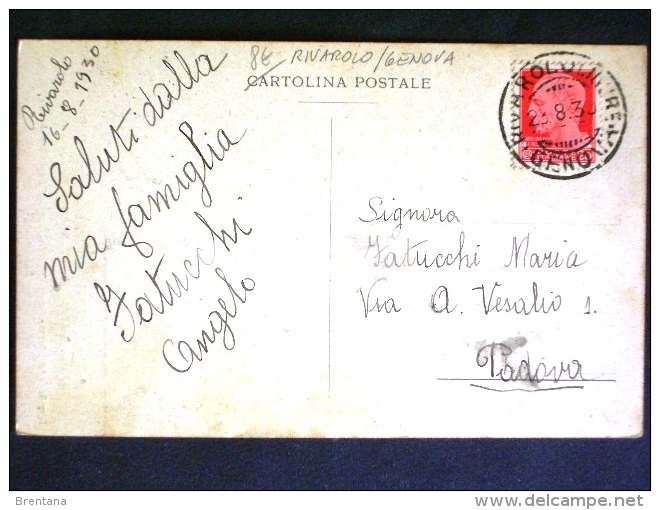 8€ RIVAROLO/GENOVA
CARTOLINA POSTALE
Rivarolo
16-8-1930
Saluti dalla
mia famiglia
Fatucchi
Angelo
GENOVA
Signora
Fatucchi Maria
Via A. Vesalio 1.
Padova
Brentana
delcampe.net